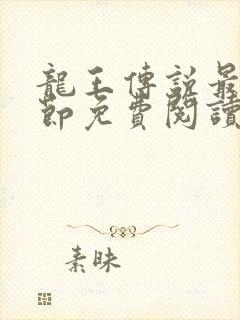 龍王傳說最
節免費閱讀
素昧